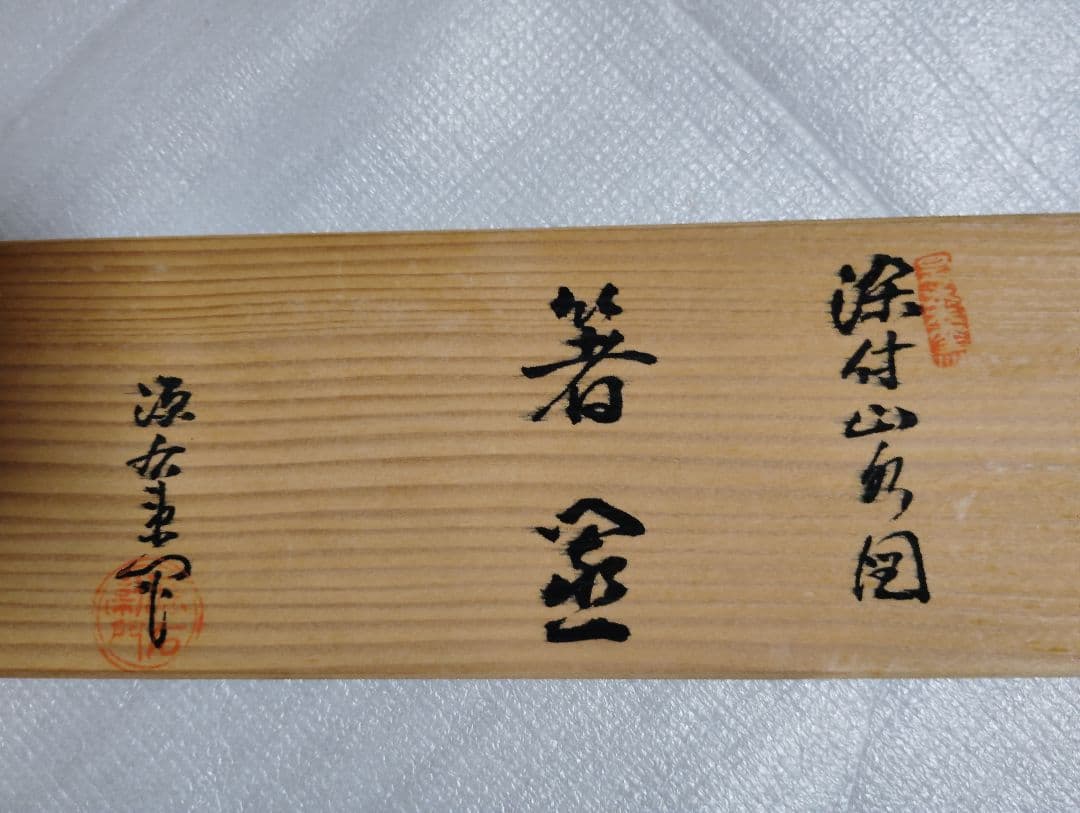 染付山水図
箸置
源右衛門